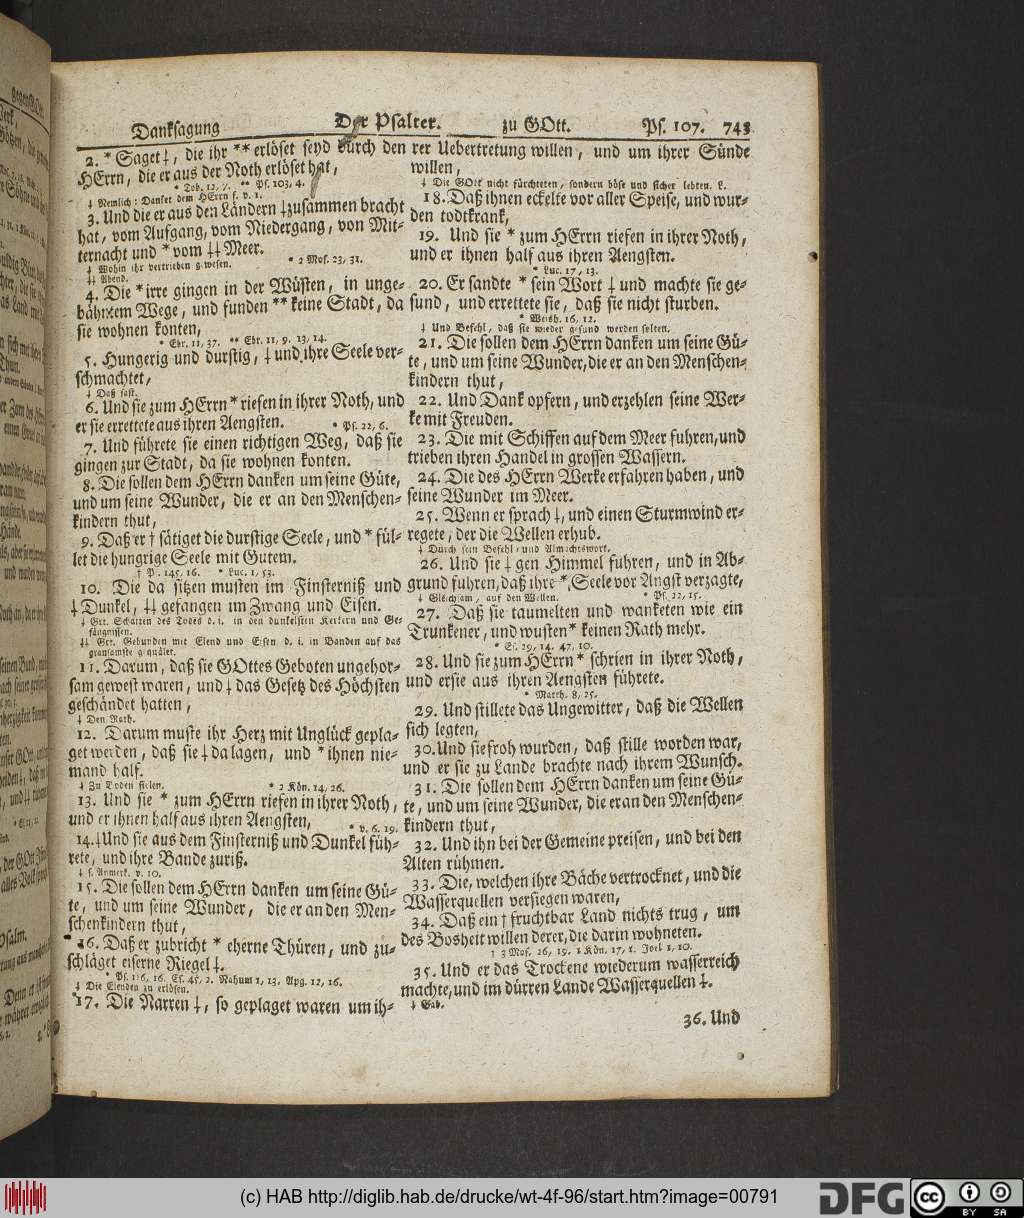 Danksagung Der Psalter. zu GOtt. Ps. 107. 743
2. * Saget ⸸, die ihr ** erlöset seyd durch den
HErrn, die er aus der Noth erlöset hat,
* Tob. 12, 7. ** Ps. 103, 4.
⸸ Nemlich: Danket dem HErrn f. v. 1.
3. Und die er aus den Ländern ⸸ zusammen bracht
hat, vom Aufgang, vom Niedergang, von Mit-
ternacht und * vom ⸸⸸ Meer.
⸸ Wohin ihr vertrieben gewesen. * 2 Mos. 23, 31.
⸸⸸ Abend.
4. Die * irre gingen in der Wüsten, in unge-
bähntem Wege, und funden ** keine Stadt, da
sie wohnen konten,
* Ebr. 11, 37. ** Ebr. 11, 9. 13, 14.
5. Hungerig und durstig, ⸸ und ihre Seele ver-
schmachtet,
⸸ Daß fast.
6. Und sie zum HErrn * riefen in ihrer Noth, und
er sie errettete aus ihren Aengsten. * Ps. 22, 6.
7. Und führete sie einen richtigen Weg, daß sie
gingen zur Stadt, da sie wohnen konten.
8. Die sollen dem HErrn danken um seine Güte,
und um seine Wunder, die er an den Menschen-
kindern thut,
9. Daß er † sätiget die durstige Seele, und * fül-
let die hungrige Seele mit Gutem.
† Ps. 145, 16. * Luc. 1, 53.
10. Die da sitzen musten im Finsterniß und
⸸ Dunkel, ⸸⸸ gefangen im Zwang und Eisen.
⸸ Grt. Schatten des Todes d. i. in den dunkelsten Kerkern und Ge-
fängnissen.
⸸⸸ Grt. Gebunden mit Elend und Eisen d. i. in Banden auf das
grausamste gequälet.
11. Darum, daß sie GOttes Geboten ungehor-
sam gewest waren, und ⸸ das Gesetz des Höchsten
geschändet hatten,
⸸ Den Rath.
12. Darum muste ihr Herz mit Unglück gepla-
get werden, daß sie ⸸ da lagen, und * ihnen nie-
mand half.
⸸ Zu Boden fielen. * 2 Kön. 14, 26.
13. Und sie * zum HErrn riefen in ihrer Noth,
und er ihnen half aus ihren Aengsten,
* v. 6. 19.
14. ⸸ Und sie aus dem Finsterniß und Dunkel füh-
rete, und ihre Bande zuriß.
⸸ s. Anmerk. v. 10.
15. Die sollen dem HErrn danken um seine Gü-
te, und um seine Wunder, die er an den Men-
schenkindern thut,
16. Daß er zubricht * eherne Thüren, und zu-
schläget eiserne Riegel ⸸.
* Ps. 116, 16. Es. 45, 2. Nahum 1, 13. Apg. 12, 16.
⸸ Die Elenden zu erlösen.
17. Die Narren ⸸, so geplaget waren um ih-
rer Uebertretung willen, und um ihrer Sünde
willen,
⸸ Die GOtt nicht fürchteten, sondern böse und sicher lebten. L.
18. Daß ihnen eckelte vor aller Speise, und wur-
den todtkrank,
19. Und sie * zum HErrn riefen in ihrer Noth,
und er ihnen half aus ihren Aengsten.
* Luc. 17, 13.
20. Er sandte * sein Wort ⸸ und machte sie ge-
sund, und errettete sie, daß sie nicht sturben.
* Weish. 16, 12.
⸸ Und Befehl, daß sie wieder gesund werden solten.
21. Die sollen dem HErrn danken um seine Gü-
te, und um seine Wunder, die er an den Menschen-
kindern thut,
22. Und Dank opfern, und erzehlen seine Wer-
ke mit Freuden.
23. Die mit Schiffen auf dem Meer fuhren, und
trieben ihren Handel in grossen Wassern.
24. Die des HErrn Werke erfahren haben, und
seine Wunder im Meer.
25. Wenn er sprach ⸸, und einen Sturmwind er-
regete, der die Wellen erhub.
⸸ Durch sein Befehl- und Allmachtswort.
26. Und sie ⸸ gen Himmel fuhren, und in Ab-
grund fuhren, daß ihre * Seele vor Angst verzagte,
⸸ Gleichsam, auf den Wellen. * Ps. 22, 15.
27. Daß sie taumelten und wanketen wie ein
Trunkener, und wusten * keinen Rath mehr.
* Es. 29, 14. 47, 10.
28. Und sie zum HErrn * schrien in ihrer Noth,
und er sie aus ihren Aengsten führete.
* Matth. 8, 25.
29. Und stillete das Ungewitter, daß die Wellen
sich legten,
30. Und sie froh wurden, daß stille worden war,
und er sie zu Lande brachte nach ihrem Wunsch.
31. Die sollen dem HErrn danken um seine Gü-
te, und um seine Wunder, die er an den Menschen-
kindern thut,
32. Und ihn bei der Gemeine preisen, und bei den
Alten rühmen.
33. Die, welchen ihre Bäche vertrocknet, und die
Wasserquellen versiegen waren,
34. Daß ein † fruchtbar Land nichts trug, um
des Bosheit willen derer, die darin wohneten.
† 3 Mos. 26, 19. 1 Kön. 17, 1. Joel 1, 10.
35. Und er das Trockene wiederum wasserreich
machte, und im dürren Lande Wasserquellen ⸸.
⸸ Gab.
36. Und
(c) HAB http://diglib.hab.de/drucke/wt-4f-96/start.htm?image=00791
DFG
cc BY SA